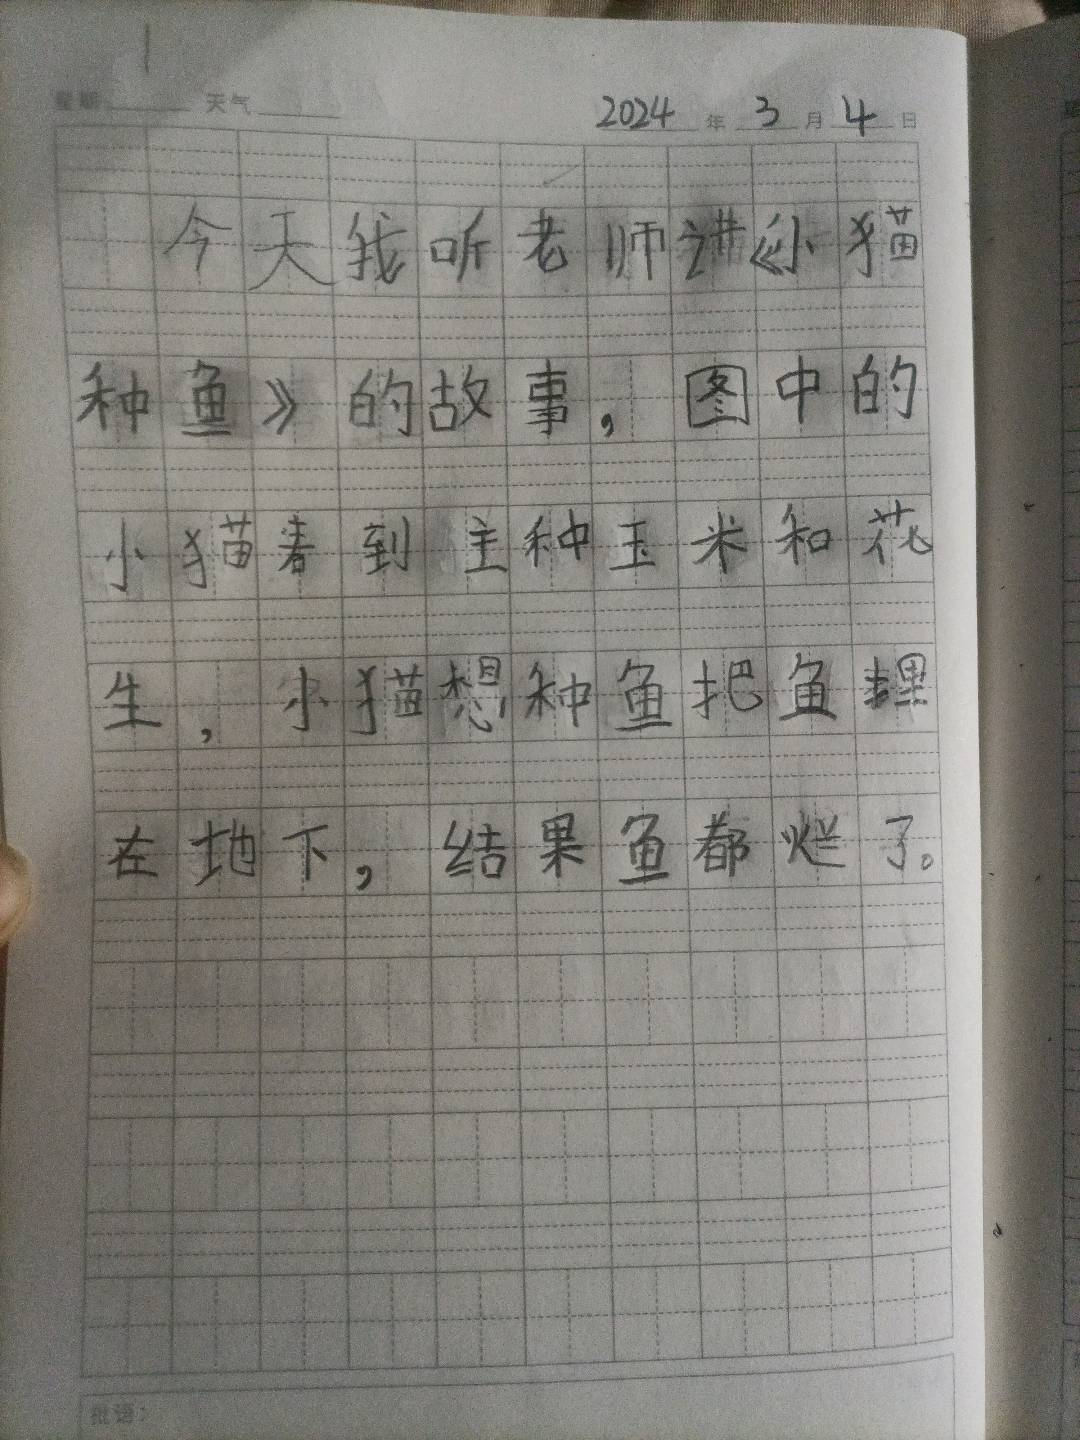 星期 天气 2024 年 3 月 4 日
今天我听老师讲《小猫
种鱼》的故事，图中的
小猫看到主种玉米和花
生，小猫想种鱼把鱼埋
在地下，结果鱼都烂了。
批语：